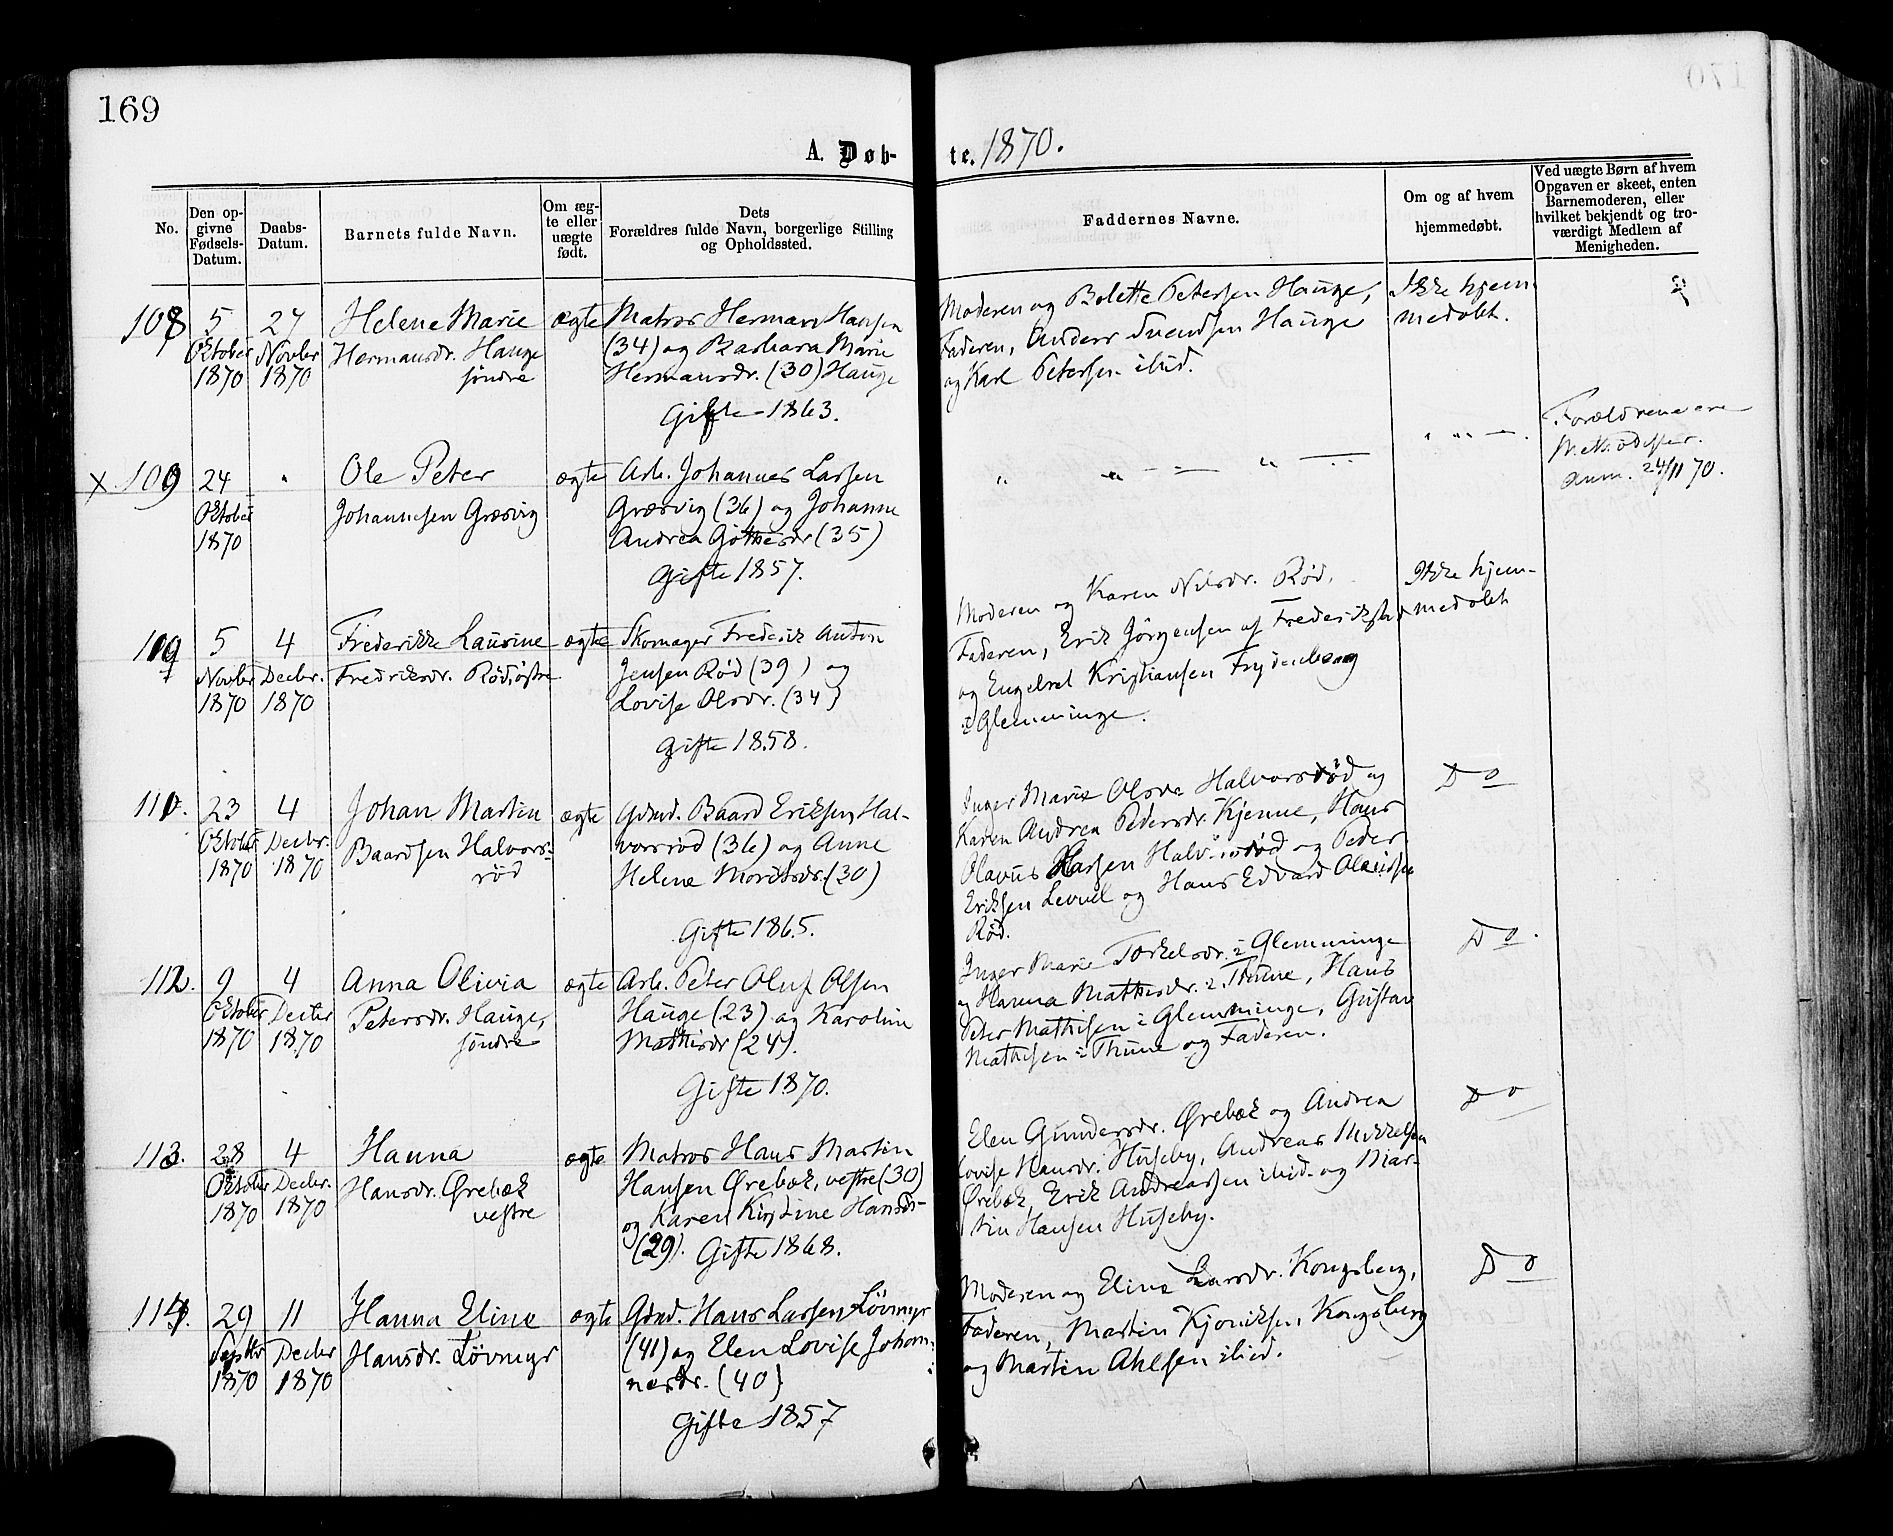 169
A. Døb-
te. 1870.
No.
Den op-
givne
Fødsels-
Datum.
Daabs-
Datum.
Barnets fulde Navn.
Om æg-
te eller
uægte
født.
Dets
Forældres fulde Navn, borgerlige Stilling
og Opholdssted.
Faddernes Navne.
Om og af hvem
hjemmedøbt.
Ved uægte Børn af hvem
Opgaven er skeet, enten
Barnemoderen, eller
hvilket bekjendt og tro-
værdigt Medlem af
Menigheden.
108
5
Oktober
1870
27
Novbr
1870
Helene Marie
Hermansdr. Hauge
søndre
ægte
Matros Herman Hansen
(34) og Barbara Marie
Hermansdr. (30) Hauge
Gifte 1863.
Moderen og Bolette Petersen Hauge,
Faderen, Anders Svendsen Hauge
og Karl Petersen ibid.
Ikke hjem-
medøbt.
x. 109
24
Oktober
1870
Ole Peter
Johannesen Græsvig
ægte
Arb. Johannes Larsen
Græsvig (36) og Johanne
Andrea Gøthesdr (35)
Gifte 1857.
Forældrene ere
Methodister.
Anm. 24/11 70.
5
Novbr
1870
4
Decbr.
1870
Frederikke Laurine
Fredriksdr. Rød, østre
ægte
Skomager Frederik Anton
Jensen Rød (39) og
Lovise Olsdr. (34)
Gifte 1858.
Moderen og Karen Nilsdr. Rød,
Faderen, Erik Jørgensen af Frederikstad
og Engebret Kristiansen Frydenberg
i Glemminge.
Ikke hjem-
medøbt
111.
23
Oktober
1870
4
Decbr.
1870
Johan Martin
Baardsen Halvors-
rød
ægte
Gdmd. Baard Eriksen Hal-
vorsrød (36) og Anne
Helene Moritsdr. (30)
Gifte 1865.
Inger Marie Olsdr Halvorsrød og
Karen Andrea Pedersdr. Kjenne, Hans
Olavus Hansen Halvorsrød og Peder
Eriksen Levuel og Hans Edvard Olavesen
Rød.
Do
112.
9
Oktober
1870
4
Decbr
1870
Anna Olivia
Petersdr. Hauge,
søndre
ægte
Arb. Peter Oluf Olsen
Hauge (23) og Karoline
Mathisdr (24).
Gifte 1870.
Inger Marie Torkelsdr. i Glemminge
og Hanna Mathisdr. i Thune, Hans
Peter Mathisen i Glemminge, Gustav
Mathisen i Thune og Faderen.
Do.
113.
28
Oktober
1870
4
Decbr.
1870
Hanna
Hansdr. Ørebæk
vestre
ægte
Matros Hans Martin
Hansen Ørebæk, vestre (30)
og Karen Kirstine Hansdr.
(29). Gifte 1868.
Elen Gundersdr. Ørebæk og Andrea
Lovise Hansdr. Huseby, Andreas Mikkelsen
Ørebæk, Erik Andreassen ibid. og Mar-
tin Hansen Huseby.
Do
114.
29
Septbr
1870
11
Decbr
1870
Hanna Eline
Hansdr. Løvmyr
ægte
Gdmd. Hans Larsen Løvmyr
(41) og Elen Lovise Johan-
nesdr. (40)
Gifte 1857
Moderen og Eline Larsdr. Kongsberg,
Faderen, Martin Kjøniksen, Kongsberg
og Martin Ahlsen ibid.
Do